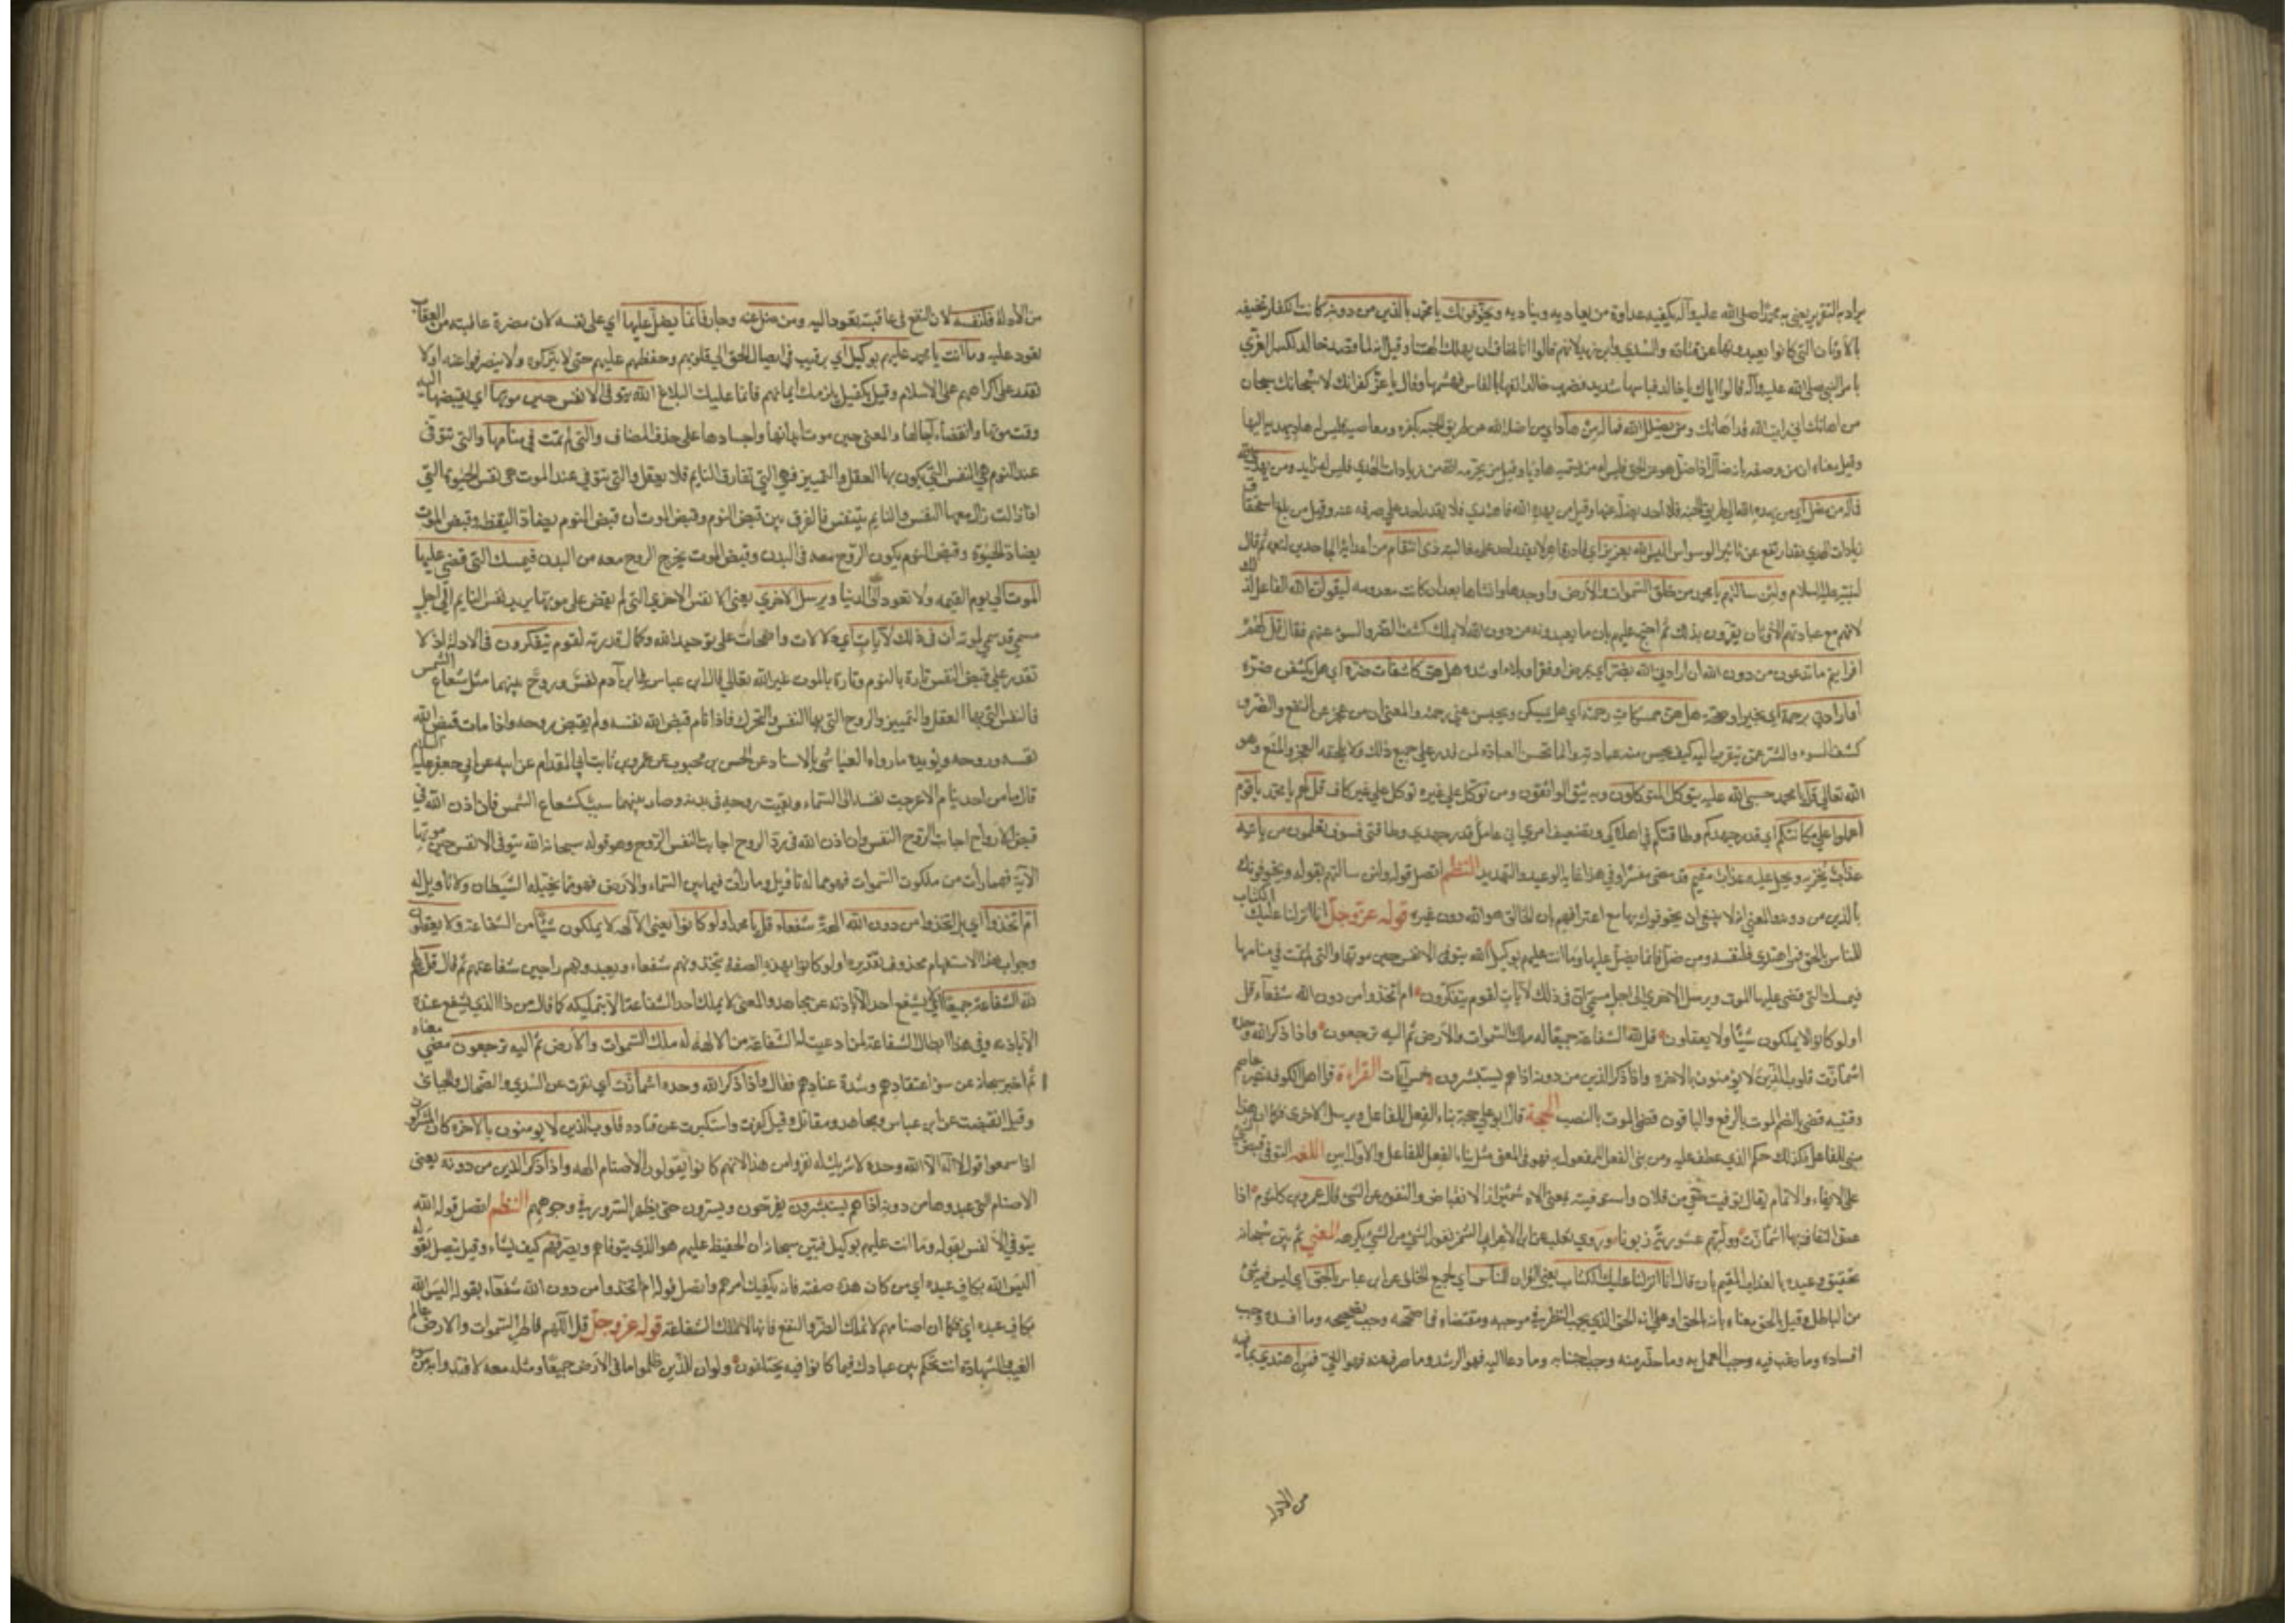 يراد به التقرير يعني به محمدا صلى الله عليه وآله يكفيه عداوة من يعاديه ويناديه ويخوفونك يا محمد بالذين من دونه كانت الكفار تخيفه
بالأوثان التي كانوا يعبدونها عن قتادة والسدي وابن زيد لانهم قالوا اما تخاف ان يهلك الهتنا وقيل انه لما قصد خالد لكسر العزي
بامر النبي صلى الله عليه وآله قالوا اياك يا خالد فباسها شديد فضرب خالد انفها بالفاس فهشمها وقال يا عز كفرانك لا سبحانك سبحان
من اهانك اني رايت الله قد اهانك ومن يضلل الله فما له من هاد اي من اضله الله عن طريق الجنة بكفره ومعاصيه فليس له هاد يهديه اليها
وقيل معناه ان من وصفه بانه ضال اذا ضل هو عن الحق فليس له من يسميه هاديا وقيل من يحرمه الله من زيادات الهدي فليس له زايد ومن يهد الله
فما له من مضل اي من يهده الله الي طريق الجنة فلا احد يضله عنها وقيل من يهده الله فاهتدي فلا يقدر احد علي صرفه عنه وقيل من بلغ استحقاق
زيادات الهدي فقد ارتفع عن تاثير الوسواس اليس الله بعزيز اي قادر قاهر لا يقدر احد علي مغالبته ذي انتقام من اعدائه الجاحدين لنعمه ثم قال
لنبيه عليه السلام ولئن سالتهم يا محمد من خلق السموات والأرض واوجدها وانشاها بعد ان كانت معدومة ليقولن الله الفاعل لذلك
لانهم مع عبادتهم الاوثان يقرون بذلك ثم احتج عليهم بان ما يعبدونه من دون الله لا يملك كشف الضر والسوء عنهم فقال قل لهم
افرايتم ما تدعون من دون الله ان ارادني الله بضر اي بمرض او فقر او بلاء او شدة هل هن كاشفات ضره اي هل يكشفن ضره
او ارادني برحمة اي بخير او صحة هل هن ممسكات رحمته اي هل يمسكن ويحبسن عني رحمته والمعني ان من عجز عن النفع والضر و
كشف السوء والشر عمن يتقرب اليه كيف يحسن منه عبادته وانما تحسن العبادة لمن قدر علي جميع ذلك ولا يلحقه العجز والمنع وهو
الله تعالي قل يا محمد حسبي الله عليه يتوكل المتوكلون وبه يثق الواثقون ومن توكل علي غيره توكل علي غير كاف قل لهم يا محمد يا قوم
اعملوا علي مكانتكم اي قدر جهدكم وطاقتكم في اهلاكي وتضعيف امري اني عامل قدر جهدي وطاقتي فسوف تعلمون من ياتيه
عذاب يخزيه ويحل عليه عذاب مقيم قد مضي مفسرا وفي هذا غاية الوعيد والتهديد النظم اتصل قوله ولئن سالتهم بقوله ويخوفونك
بالذين من دونه والمعني انه لا ينبغي ان يخوفوك بها مع اعترافهم بان الخالق هو الله دون غيره قوله عز وجل انا انزلنا عليك الكتاب
للناس بالحق فمن اهتدي فلنفسه ومن ضل فانما يضل عليها وما انت عليهم بوكيل الله يتوفي الانفس حين موتها والتي لم تمت في منامها
فيمسك التي قضي عليها الموت ويرسل الاخري الي اجل مسمي ان في ذلك لآيات لقوم يتفكرون ام اتخذوا من دون الله شفعاء قل
اولو كانوا لا يملكون شيئا ولا يعقلون قل لله الشفاعة جميعا له ملك السموات والأرض ثم اليه ترجعون واذا ذكر الله وحده
اشمازت قلوب الذين لا يؤمنون بالاخرة واذا ذكر الذين من دونه اذا هم يستبشرون خمس آيات القراءة قرا اهل الكوفة غير عاصم
وقتيبة قضي بالضم الموت بالرفع والباقون قضي الموت بالنصب الحجة قال ابو علي حجة بناء الفعل للفاعل ويرسل الاخري فكما ان هذا
مبني للفاعل فكذلك حكم الذي عطف عليه ومن بني الفعل للمفعول به فهو في المعني مثل بناء الفعل للفاعل والاول ابين اللغة التوفي قبض الشئ
علي الايفاء والاتمام يقال توفيت حقي من فلان واستوفيته بمعني الاشمئزاز الانقباض والنفور عن الشئ قال عمرو بن كلثوم اذا
عض الثقاف بها اشمازت وولتهم عشوزنة زبونا وروي ثعلب عن ابن الأعرابي الشمز نفور الشئ من الشئ يكرهه المعني ثم بين سبحانه
تحقيق وعيده بالعذاب المقيم بان قال انا انزلنا عليك الكتاب يعني القران للناس اي لجميع الخلق عن ابن عباس بالحق اي ليس فيه شئ
من الباطل وقيل بالحق معناه بانه الحق او علي انه الحق الذي يجب النظر في موجبه ومقتضاه فما صححه وجب تصحيحه وما افسده وجب
افساده وما رغب فيه وجب العمل به وما حذر منه وجب اجتنابه وما دعا اليه فهو الرشد وما صرف عنه فهو الغي فمن اهتدي بما فيه
من الادلة
من الأدلة فلنفسه لان النفع في عاقبته يعود اليه ومن ضل عنه وحار فانما يضل عليها اي علي نفسه لان مضرة عاقبته من العقاب
تعود عليه وما انت يا محمد عليهم بوكيل اي برقيب في ايصال الحق الي قلوبهم وحفظهم عليهم حتي لا يتركوه ولا ينصرفوا عنه اولا
تقدر علي اكراههم علي الاسلام وقيل بكفيل يلزمك ايمانهم فانما عليك البلاغ الله يتوفي الانفس حين موتها اي يقبضها اليه
وقت موتها وانقضاء آجالها والمعني حين موت ابدانها واجسادها علي حذف المضاف والتي لم تمت في منامها والتي تتوفي
عند النوم هي النفس التي يكون بها العقل والتمييز فهي التي تفارق النايم فلا يعقل والتي تتوفي عند الموت هي نفس الحيوة التي
اذا زالت زال معها النفس والنايم يتنفس فالفرق بين قبض النوم وقبض الموت ان قبض النوم يضاد اليقظة وقبض الموت
يضاد الحيوة وقبض النوم يكون الروح معه في البدن وقبض الموت يخرج الروح معه من البدن فيمسك التي قضي عليها
الموت الي يوم القيمة ولا تعود الي الدنيا ويرسل الاخري يعني الانفس الاخري التي لم يقض علي موتها يريد نفس النايم الي اجل
مسمي قد سمي لموته ان في ذلك لآيات اي دلالات واضحات علي توحيد الله وكمال قدرته لقوم يتفكرون في الادلة اذ لا
تقدر علي قبض النفس تارة بالنوم وتارة بالموت غير الله تعالي قال ابن عباس في ابن آدم نفس وروح بينهما مثل شعاع الشمس
فالنفس التي بها العقل والتمييز والروح التي بها النفس والتحرك فاذا نام قبض الله نفسه ولم يقبض روحه واذا مات قبض الله
نفسه وروحه ويؤيده ما رواه العياشي بالاسناد عن الحسن بن محبوب عن عمرو بن ثابت ابي المقدام عن ابيه عن ابي جعفر عليه السلام
قال ما من احد ينام الا عرجت نفسه الي السماء وبقيت روحه في بدنه وصار بينهما سبب كشعاع الشمس فان اذن الله في
قبض الارواح اجابت الروح النفس وان اذن الله في رد الروح اجابت النفس الروح وهو قوله سبحانه الله يتوفي الانفس حين موتها
الآية فمهما رأت من ملكوت السموات فهو مما له تاويل وما رأت فيما بين السماء والأرض فهو مما يخيله الشيطان ولا تاويل له
ام اتخذوا اي بل اتخذوا من دون الله الهة شفعاء قل يا محمد اولو كانوا يعني الآلهة لا يملكون شيئا من الشفاعة ولا يعقلون
وجواب هذا الاستفهام محذوف تقديره اولو كانوا بهذه الصفة يتخذونهم شفعاء ويعبدونهم راجين شفاعتهم ثم قال قل لهم
لله الشفاعة جميعا اي لا يشفع احد الا باذنه عن مجاهد والمعني لا يملك احد الشفاعة الا بتمليكه كما قال من ذا الذي يشفع عنده
الا باذنه وفي هذا ابطال الشفاعة لمن ادعيت له الشفاعة من الالهة له ملك السموات والأرض ثم اليه ترجعون مضي معناه
ثم اخبر سبحانه عن سوء اعتقادهم وشدة عنادهم فقال واذا ذكر الله وحده اشمازت اي نفرت عن السدي والضحاك والجبائي
وقيل انقبضت عن ابن عباس ومجاهد ومقاتل وقيل كفرت واستكبرت عن قتادة قلوب الذين لا يومنون بالاخرة كان المشركون
اذا سمعوا قول لا اله الا الله وحده لا شريك له نفروا من هذا لانهم كانوا يقولون الأصنام الهة واذا ذكر الذين من دونه يعني
الاصنام التي عبدوها من دونه اذا هم يستبشرون يفرحون ويسرون حتي يظهر السرور في وجوههم النظم اتصل قوله الله
يتوفي الأنفس بقوله وما انت عليهم بوكيل فبين سبحانه ان الحفيظ عليهم هو الذي يتوفاهم ويصرفهم كيف يشاء وقيل يتصل بقوله
اليس الله بكاف عبده اي من كان هذه صفته فانه يكفيك امرهم واتصل قوله ام اتخذوا من دون الله شفعاء بقوله اليس الله
بكاف عبده اي فكما ان اصنامهم لا تملك الضر والنفع فانها لا تملك الشفاعة قوله عز وجل قل اللهم فاطر السموات والارض عالم
الغيب والشهادة انت تحكم بين عبادك فيما كانوا فيه يختلفون ولو ان للذين ظلموا ما في الأرض جميعا ومثله معه لافتدوا به من